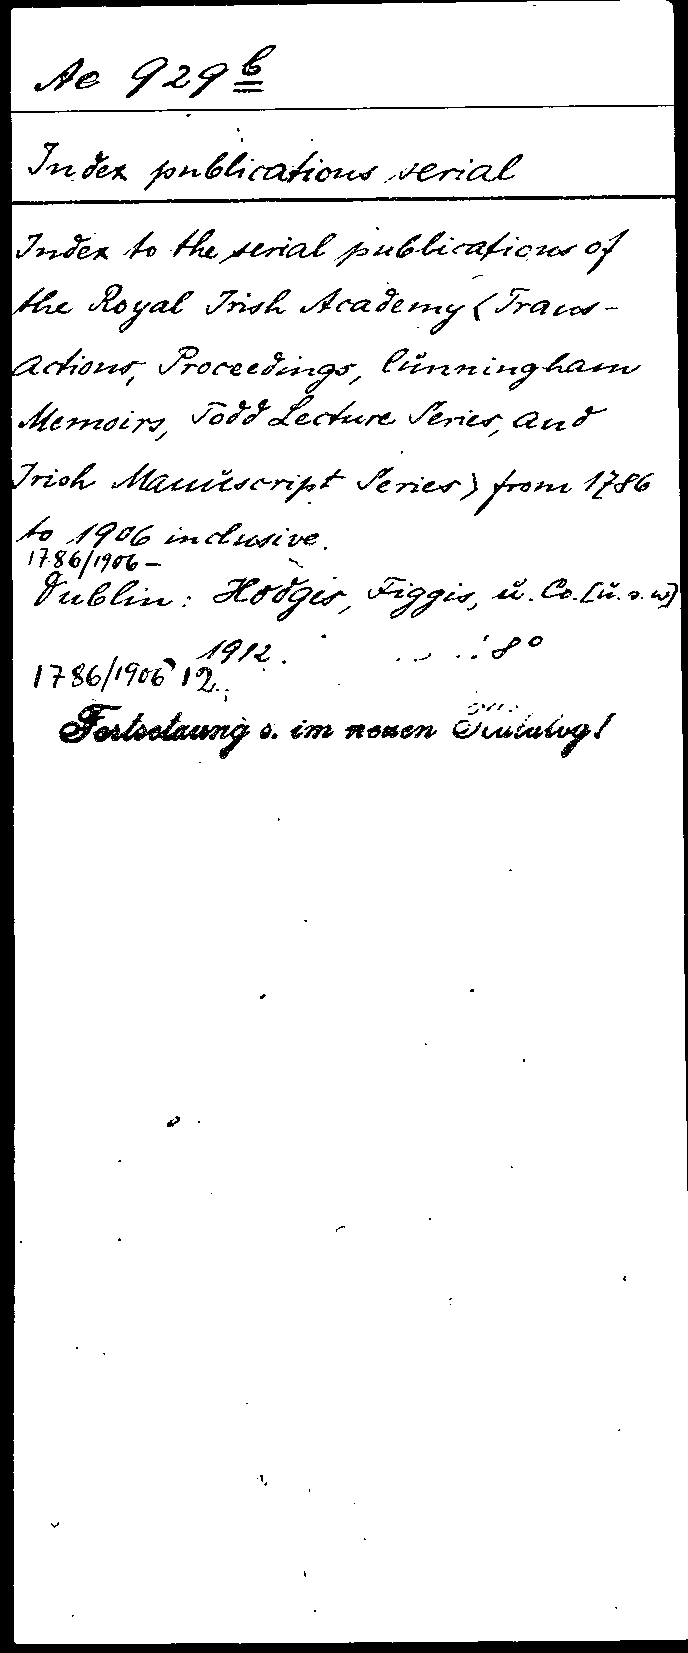 Ae 929 b
Index publications serial
Index to the serial publications of
the Royal Irish Academy (Trans-
actions, Proceedings, Cunningham
Memoirs, Todd Lecture Series, and
Irish Manuscript Series) from 1786
to 1906 inclusive.
1786/1906 –
Dublin: Hodges, Figgis, u. Co. [u. s. w]
1912. 8°
1786/1906 12
Fortsetzung s. im neuen Katalog!